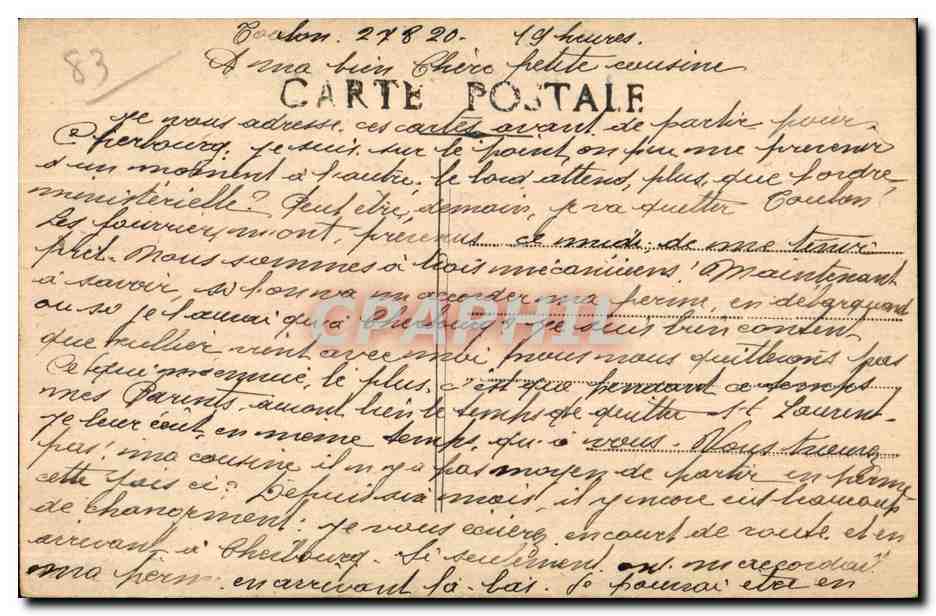 83
Toulon. 27 8 20. 19 heures.
A ma bien Chère petite cousine
CARTE POSTALE
Je vous adresse ces cartes avant de partir pour
Cherbourg. Je suis sur le point, on peu me prevenir
d'un moment à l'autre. le bord attend, plus, que l'ordre,
ministérielle? Peut être, demain, je va quetter Toulon!
les fourriers, m'ont, prevenus ce midi, de me tenir
prêt. Nous sommes à trois mécaniciens! Maintenant
à savoir, si l'on va m'accorder ma perme, en debarquant
ou si je l'aurai qu'à Cherbourg? Je suis bien content
que vient avec moi, nous nous quitterons pas
Ce qui m'ennuie, le plus, c'est que pendant ce temps
mes Parents auront bien le temps de quitter St Laurent.
Je leur écrit, en même temps, qu'à vous. Vous
pas, ma cousine il n'y a pas moyen de partir en perme
cette fois ci? Depuis six mois, il y encore eut beaucoup
de changement. Je vous écrirez en court de route et en
arrivant à Cherbourg. Si seulement on m'accordait
ma perm en arrivant là-bas. Je pourrai être en
CPAPHIL